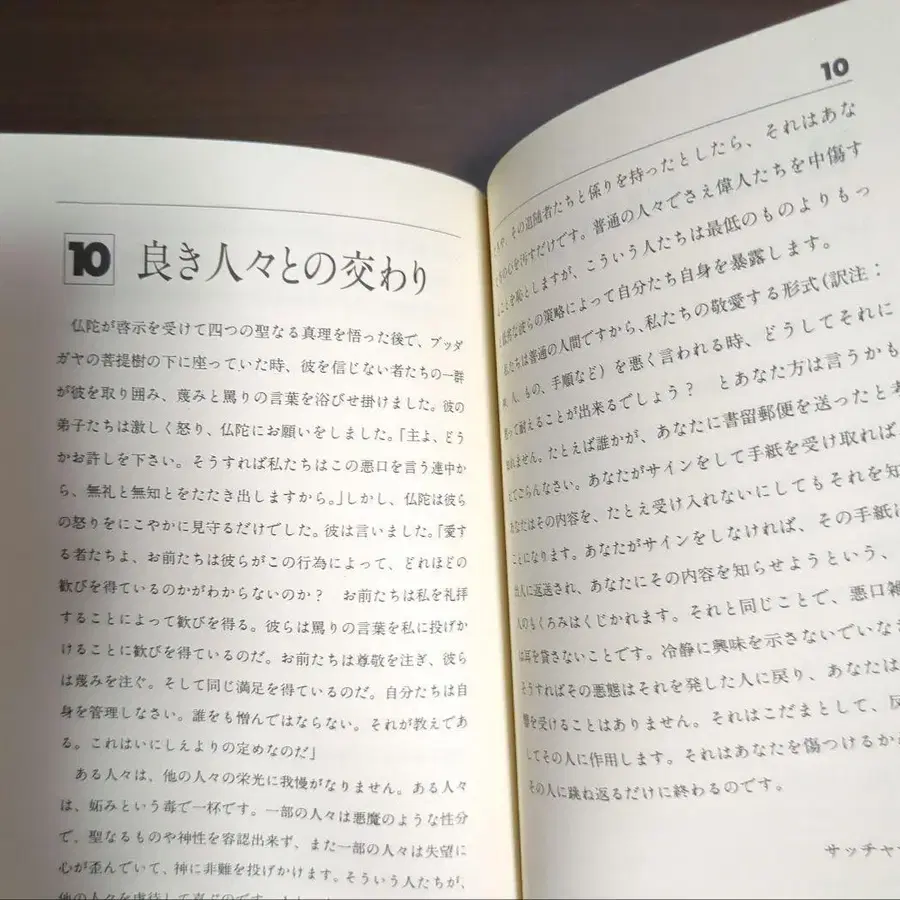 10 良き人々との交わり
仏陀が啓示を受けて四つの聖なる真理を悟った後で、ブッダ
ガヤの菩提樹の下に座っていた時、彼を信じない者たちの一群
が彼を取り囲み、蔑みと罵りの言葉を浴びせ掛けました。彼の
弟子たちは激しく怒り、仏陀にお願いをしました。「主よ、どう
かお許しを下さい。そうすれば私たちはこの悪口を言う連中か
ら、無礼と無知とをたたき出しますから。」しかし、仏陀は彼ら
の怒りをにこやかに見守るだけでした。彼は言いました。「愛す
る者たちよ、お前たちは彼らがこの行為によって、どれほどの
歓びを得ているのかがわからないのか？　お前たちは私を礼拝
することによって歓びを得る。彼らは罵りの言葉を私に投げか
けることに歓びを得ているのだ。お前たちは尊敬を注ぎ、彼ら
は蔑みを注ぐ。そして同じ満足を得ているのだ。自分たちは自
身を管理しなさい。誰をも憎んではならない。それが教えであ
る。これはいにしえよりの定めなのだ」
ある人々は、他の人々の栄光に我慢がなりません。ある人々
は、妬みという毒で一杯です。一部の人々は悪魔のような性分
で、聖なるものや神性を容認出来ず、また一部の人々は失望に
心が歪んでいて、神に非難を投げかけます。そういう人たちが、
他の人々を虐待して喜ぶのです。
10
や、その追随者たちと係りを持ったとしたら、それはあな
の心を汚すだけです。普通の人々でさえ偉人たちを中傷す
ことを恥としますが、こういう人たちは最低のものよりもっ
な彼らの策略によって自分たち自身を暴露します。
私たちは普通の人間ですから、私たちの敬愛する形式（訳注：
人、もの、手順など）を悪く言われる時、どうしてそれに
って耐えることが出来るでしょう？　とあなた方は言うかも
れません。たとえば誰かが、あなたに書留郵便を送ったと考
てごらんなさい。あなたがサインをして手紙を受け取れば、
あなたはその内容を、たとえ受け入れないにしてもそれを知
ことになります。あなたがサインをしなければ、その手紙は
出人に返送され、あなたにその内容を知らせようという、
人のもくろみはくじかれます。それと同じことで、悪口雑
は耳を貸さないことです。冷静に興味を示さないでいなさ
そうすればその悪態はそれを発した人に戻り、あなたは
響を受けることはありません。それはこだまとして、反
してその人に作用します。それはあなたを傷つけるか
その人に跳ね返るだけに終わるのです。
サッチャ